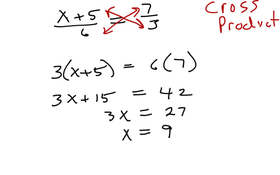 x + 5 / 6 = 7 / 3
Cross Product
3(x+5) = 6(7)
3x + 15 = 42
3x = 27
x = 9